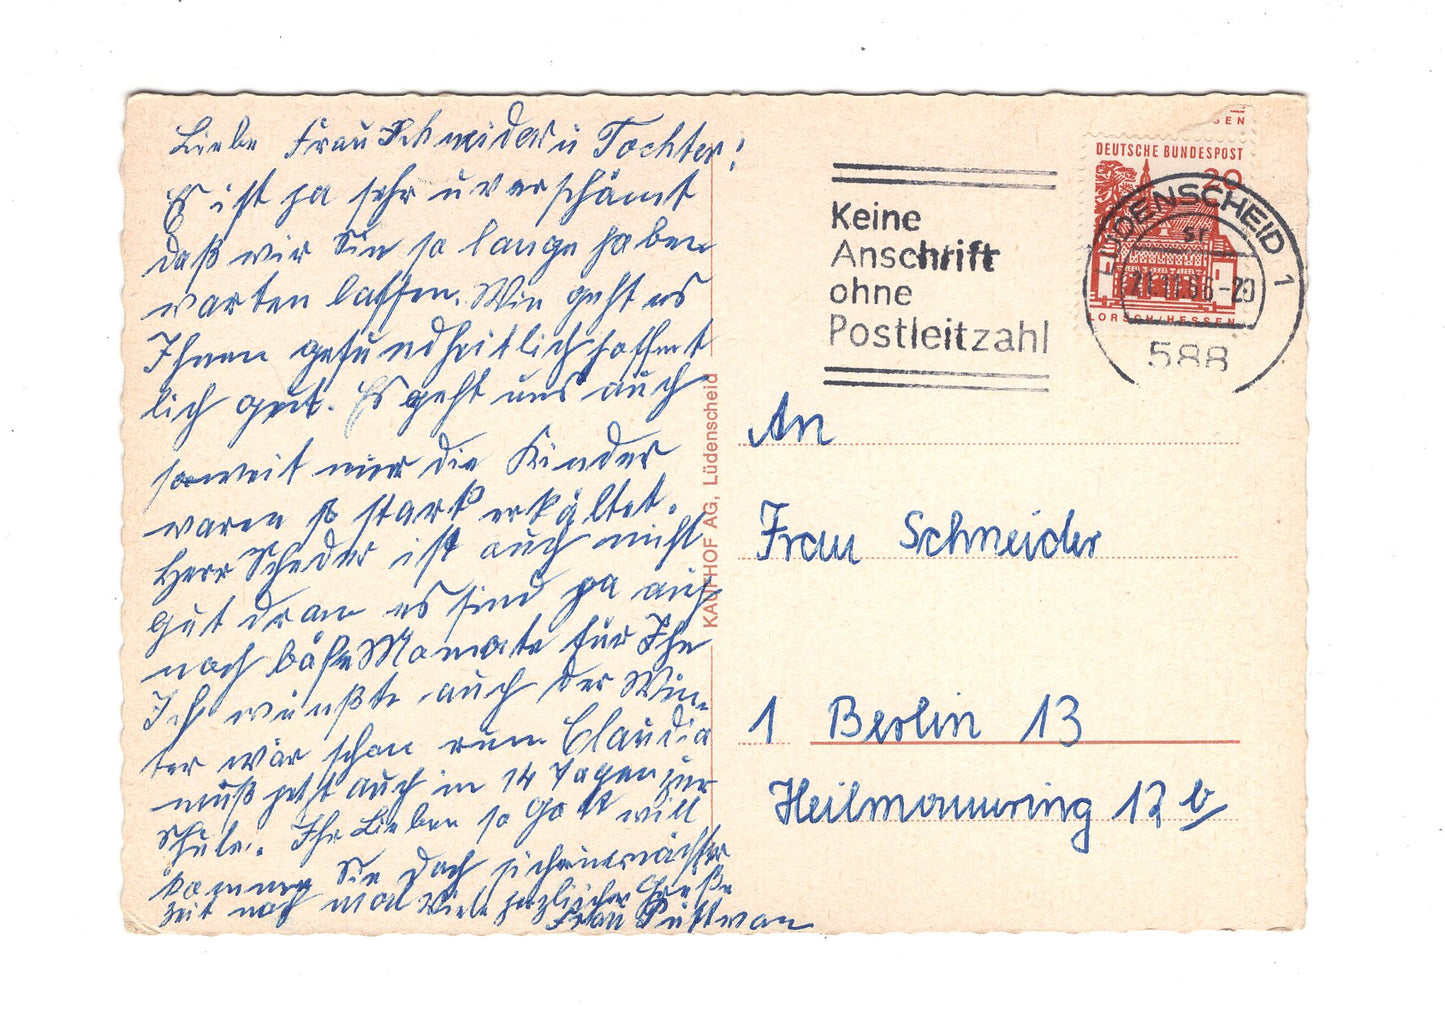 Liebe Frau Schneider u Tochter!
Es ist ja sehr unverschämt
daß wir Sie so lange haben
warten lassen. Wie geht es
Ihnen gesundheitlich hoffent
lich gut. Es geht uns auch
soweit nur die Kinder
waren so stark erkältet.
Herr Scheder ist auch nicht
gut dran es sind ja auch
noch böse Monate für Ihn
Ich wünßte auch der Win-
ter wär schon rum Claudia
muß jetzt auch in 14 Tagen zur
Schule. Ihr Lieben so Gott will
kommen Sie doch sicher nächster
Zeit noch mal Viele herzlichen Grüße
Frau
KAUFHOF AG, Lüdenscheid
Keine
Anschrift
ohne
Postleitzahl
SEN
DEUTSCHE BUNDESPOST
20
LORSCH/HESSEN
LÜDENSCHEID 1
sr
21.11.66-20
588
An
Frau Schneider
1 Berlin 13
Heilmannring 12 b